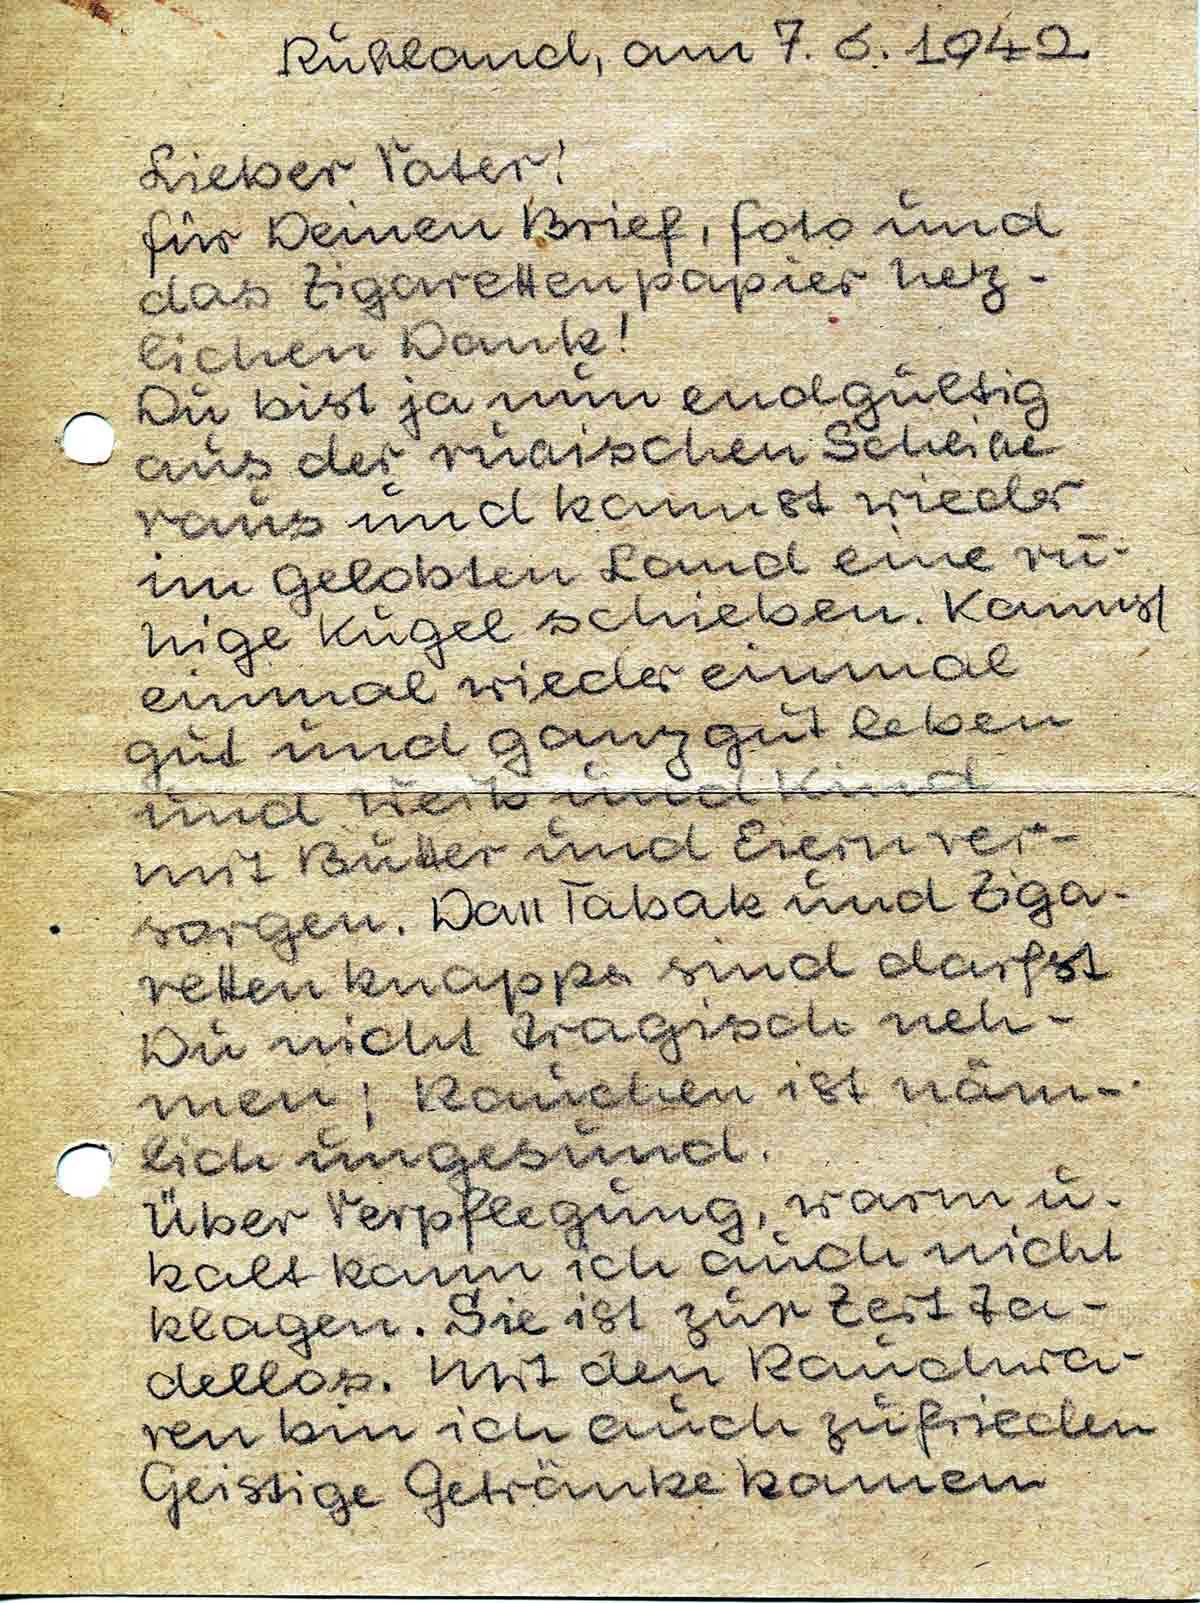 Rußland, am 7. 6. 1942
Lieber Vater!
für Deinen Brief, foto und
das Zigarettenpapier hez-
lichen Dank!
Du bist ja nun endgültig
aus der rusischen Scheibe
raus und kannst wieder
im gelobten Land eine ru-
hige Kugel schieben. Kannst
einmal wieder einmal
gut und ganz gut leben
und Weib und Kind
mit Butter und Eiern ver-
sorgen. Daß Tabak und Ziga-
retten knapp sind darfst
Du nicht tragisch neh-
men; Rauchen ist näm-
lich ungesund.
Über Verpflegung, warm u.
kalt kann ich auch nicht
klagen. Sie ist zur Zeit ta-
dellos. Mit den Rauchwa-
ren bin ich auch zufrieden
Geistige Getränke kamen